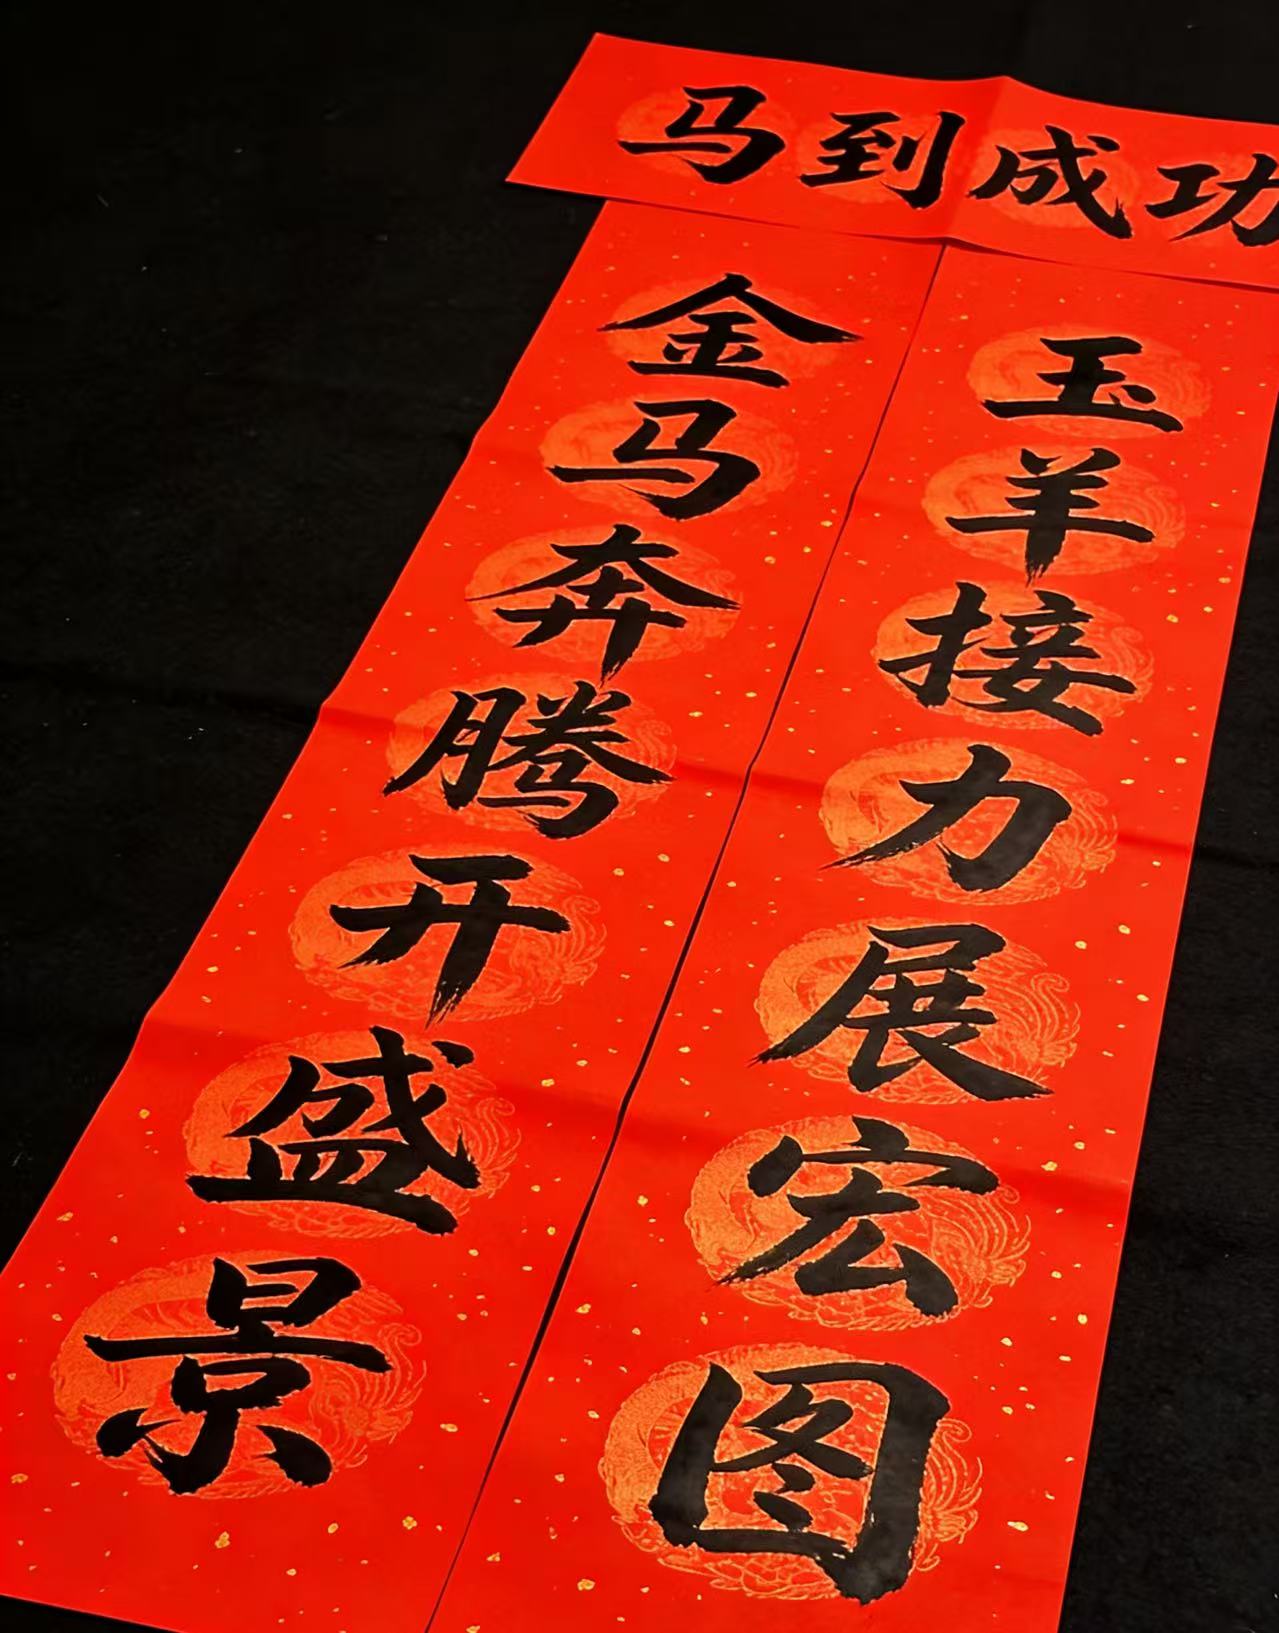 马到成功
金马奔腾开盛景
玉羊接力展宏图